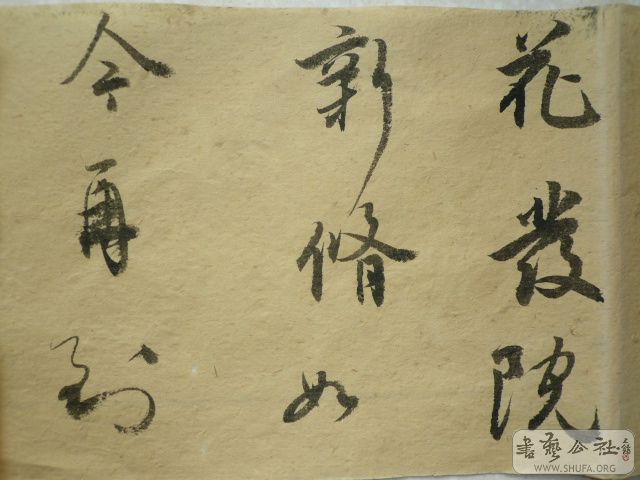 花發院
新脩如
今再到
書藝公社
WWW.SHUFA.ORG